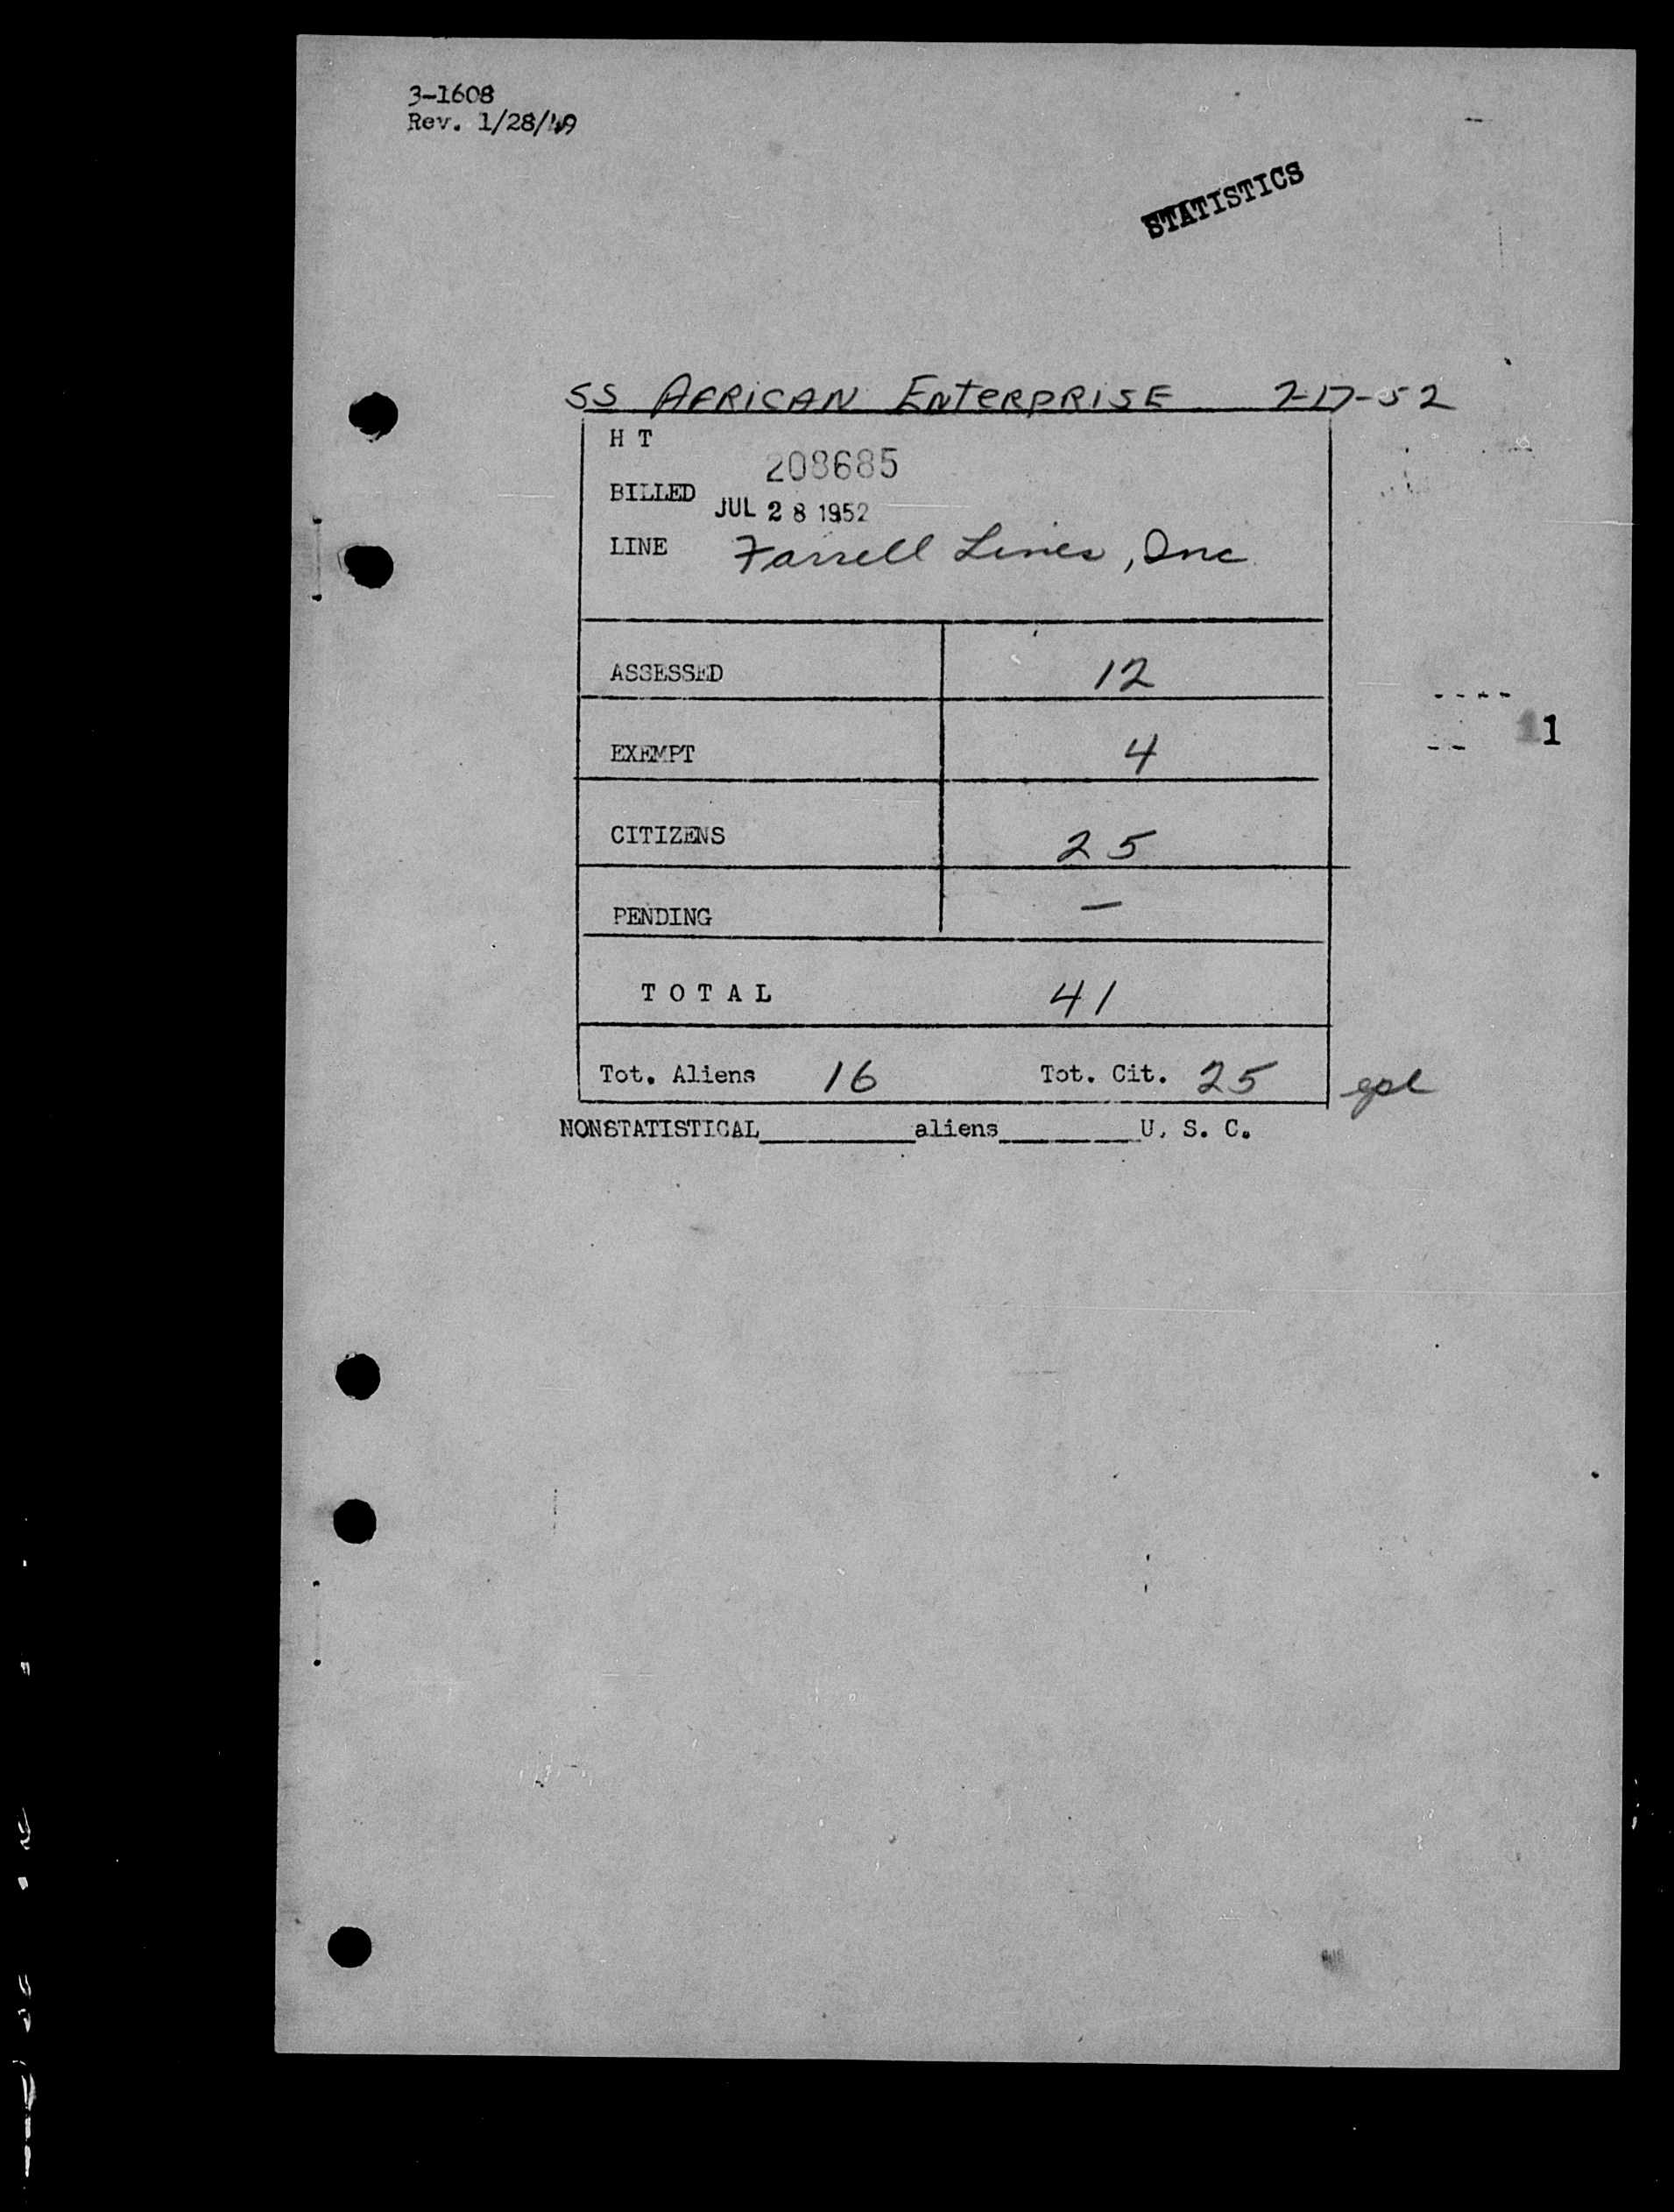 3-1608
Rev. 1/28/49
STATISTICS
SS AFRICAN ENTERPRISE 7-17-52
H T
208685
BILLED
JUL 28 1952
LINE Farrell Lines, Inc
ASSESSED 12
1
EXEMPT 4
CITIZENS 25
PENDING —
TOTAL 41
Tot. Aliens 16 Tot. Cit. 25
NONSTATISTICAL__________aliens_________U. S. C.